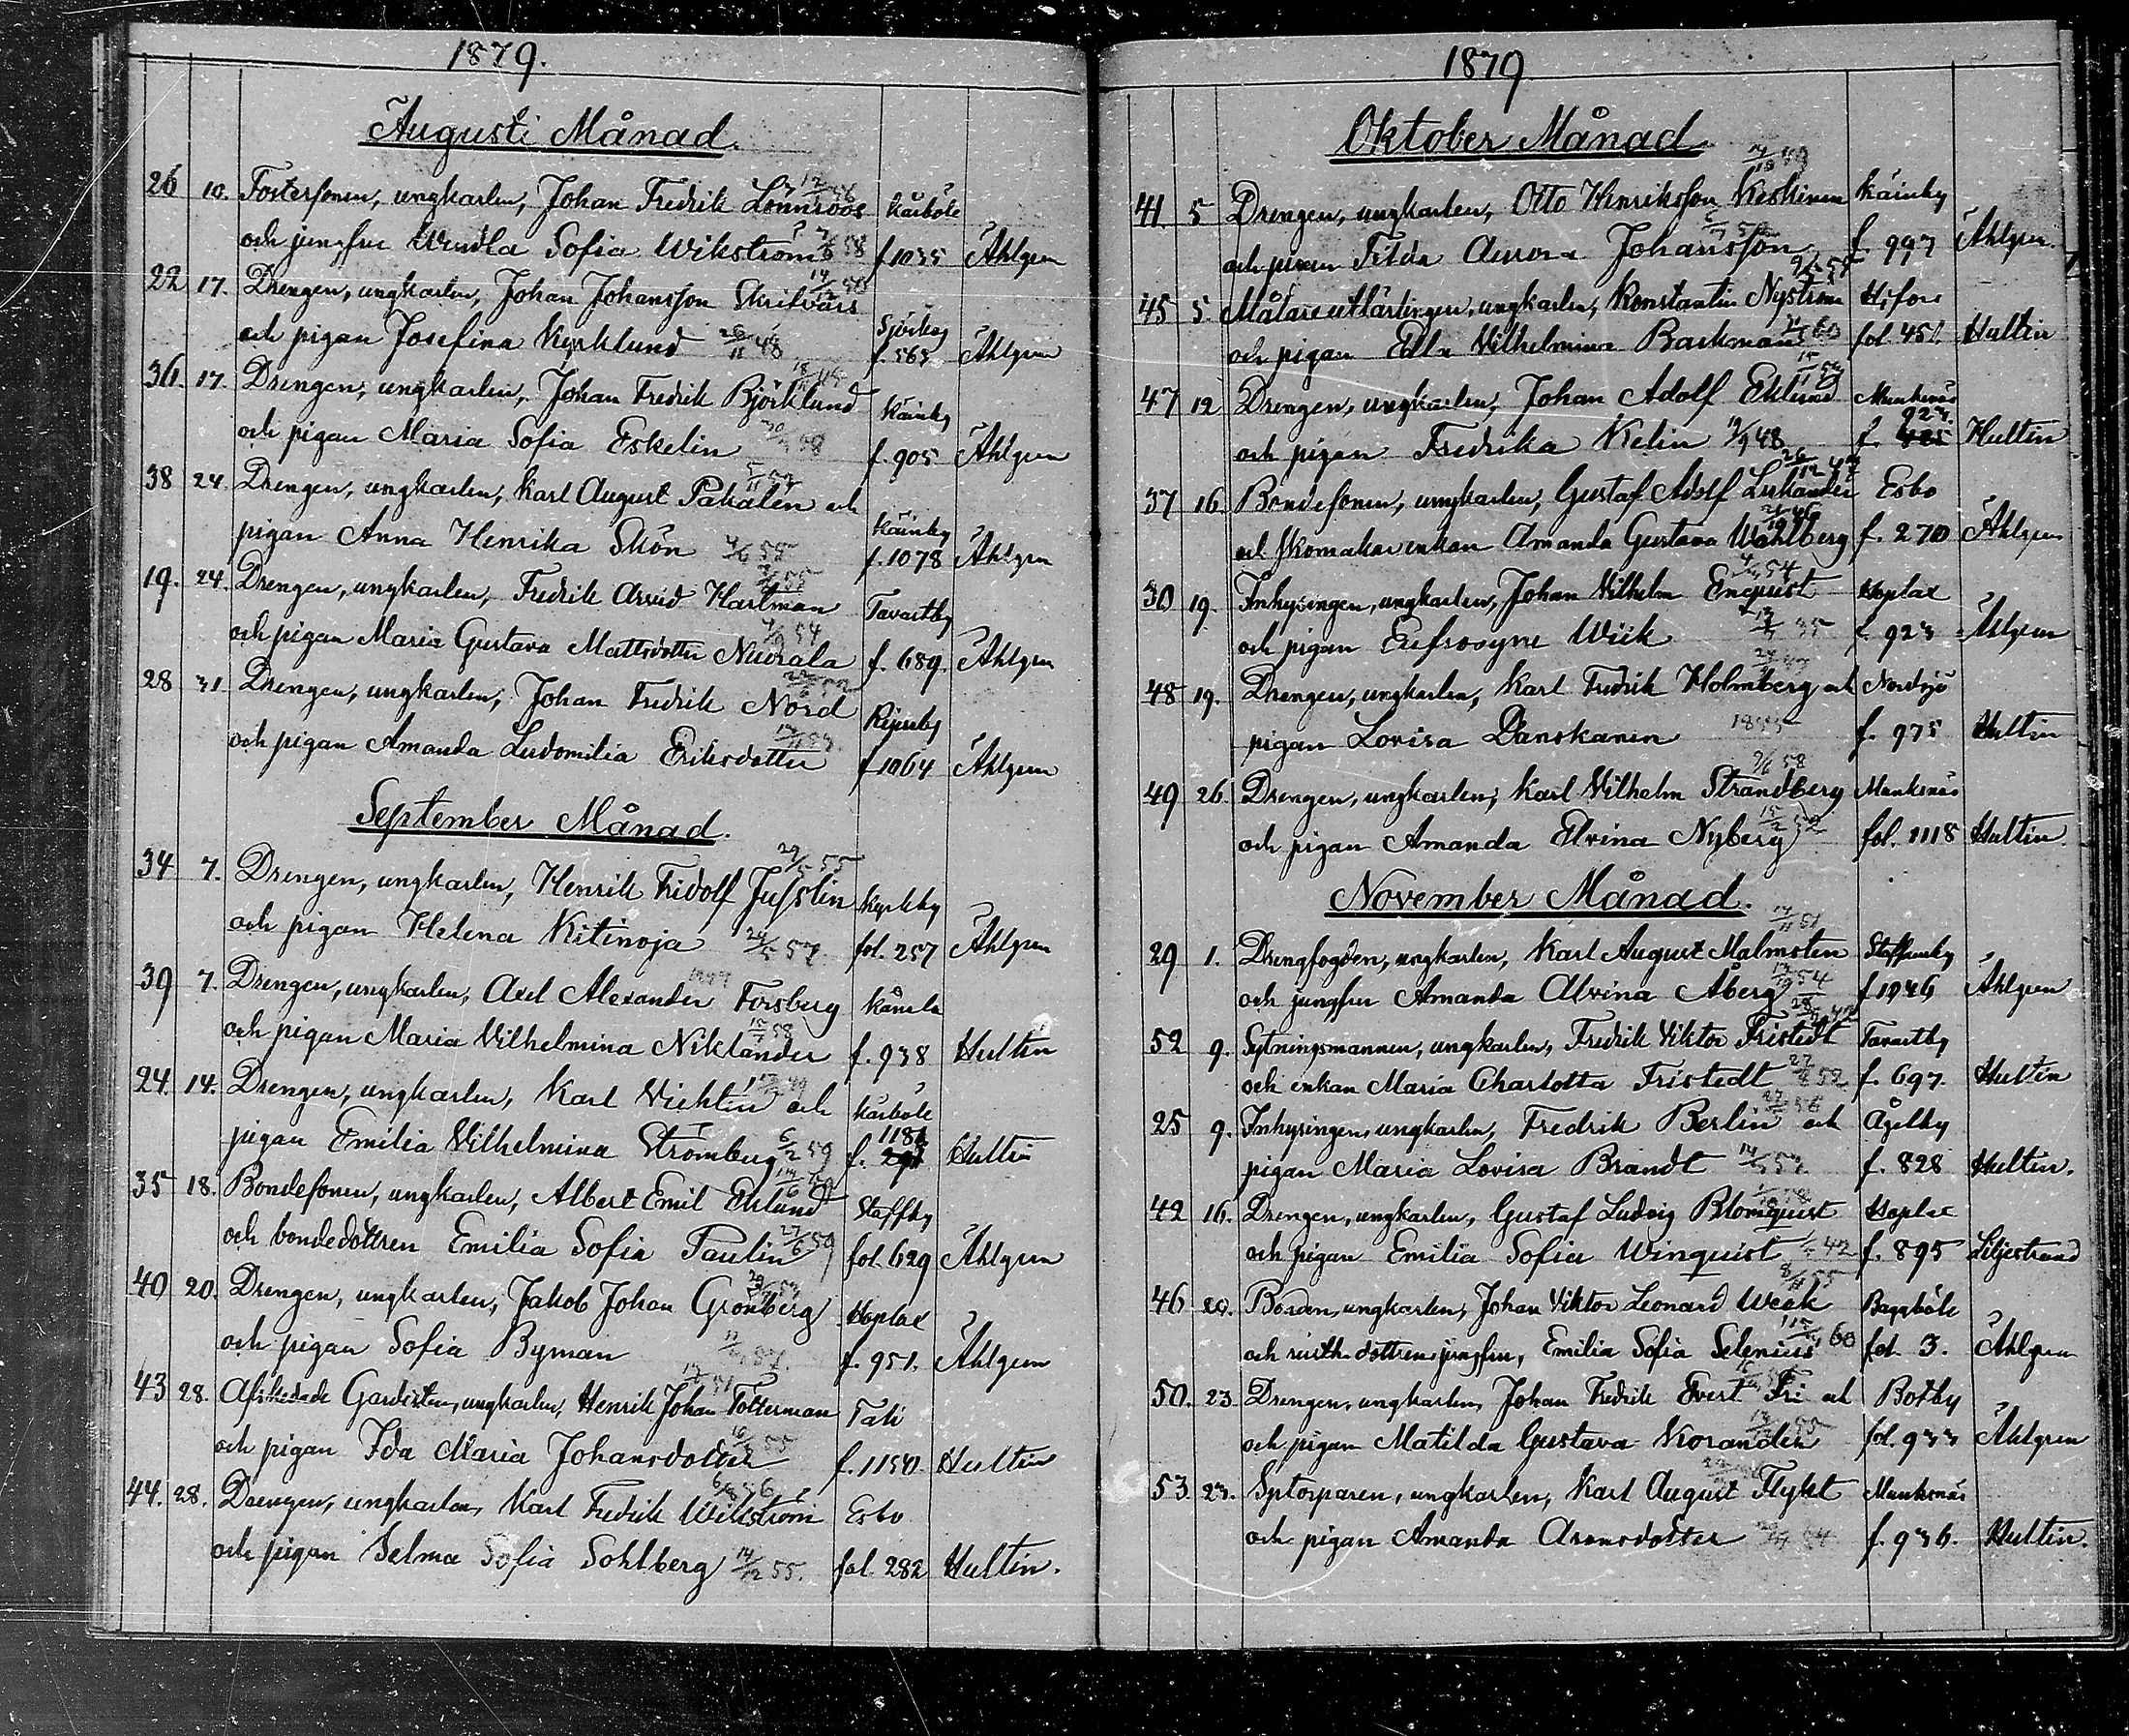 1879.
Augusti Månad.
26 10. Fostersonen, ungkarlen, Johan Fredrik Lönnroos Kårböle
och jungfru Wendla Sofia Wikström 58 f 1035 Åhlgren
22 17. Drengen, ungkarlen, Johan Johansson Skrifvars
och pigan Josefina Kyrklund 48 f. 565 Åhlgren
36. 17. Drengen, ungkarlen, Johan Fredrik Björklund Käinby
och pigan Maria Sofia Eskelin f. 905 Åhlgren
38 24. Drengen, ungkarlen, Karl August Pakalén och
pigan Anna Henrika Skön 4/6 55 Käinby f. 1078 Åhlgren
19. 24. Drengen, ungkarlen, Fredrik Arvid Hartman Tavastby
och pigan Maria Gustava Mattsdotter 54 f. 689. Åhlgren
28 31 Drengen, ungkarlen, Johan Fredrik Nord
och pigan Amanda Ludomilia Eriksdotter f 1064 Åhlgren
September Månad.
34 7. Drengen, ungkarlen, Henrik Fridolf Jusslin 55
och pigan Helena Kitinoja 57 fol. 257 Åhlgren
39 7. Drengen, ungkarlen, Axel Alexander Forsberg Kånala
och pigan Maria Vilhelmina Niklander 58 f. 938 Hultin
24. 14. Drengen, ungkarlen, Karl och Kårböle
pigan Emilia Vilhelmina Strömberg 6/2 59 f. 1181 Hultin
35 18. Bondesonen, ungkarlen, Albert Emil Eklund Staffby
och bondedottren Emilia Sofia Paulin 27/6 59 fol. 629 Åhlgren
40 20. Drengen, ungkarlen, Jakob Johan Grönberg Hoplax
och pigan Sofia Byman f. 951. Åhlgren
43 28. Afskedade Gardisten, ungkarlen, Henrik Johan Totterman Tali
och pigan Ida Maria Johansdotter 55 f. 1150 Hultin
44. 28. Drengen, ungkarlen, Karl Fredrik Wikström Esbo
och pigan Selma Sofia Sohlberg 14/12 55. fol. 282 Hultin.
1879
Oktober Månad.
41. 5 Drengen, ungkarlen, Otto Henriksson Keskinen Käinby
och pigan Tilda Aurora Johansson f 997 Åhlgren.
45 5. Målareutlärlingen, ungkarlen, Konstantin Nyström H:fors
och pigan Edla Vilhelmina Backman 60 fol. 451. Hultin
47 12 Drengen, ungkarlen, Johan Adolf Eklund Munksnäs
och pigan Fredrika Kelin 48 f. 923. Hultin
37 16. Bondesonen, ungkarlen, Gustaf Adolf Lukander Esbo
och skomakarenkan Amanda Gustava Wahlberg f. 270 Åhlgren
30 19. Inhysingen, ungkarlen, Johan Vilhelm Enquist Hoplax
och pigan Eufrosyne Wiik 35 f. 923 Åhlgren
48 19. Drengen, ungkarlen, Karl Fredrik Holmberg och Nordsjö
pigan Lovisa Danskanen f. 975 Hultin
49 26. Drengen, ungkarlen, Karl Vilhelm Strandberg 58 Munksnäs
och pigan Amanda Elvina Nyberg 52 fol. 1118 Hultin.
November Månad.
29 1. Drengfogden, ungkarlen, Karl August Malmsten Staffansby
och jungfru Amanda Alvina Åberg 54 f 1046 Åhlgren
52 9. Sytningsmannen, ungkarlen, Fredrik Viktor Fristedt Tavastby
och enkan Maria Charlotta Fristedt 52 f. 697. Hultin
25 9. Inhysingen, ungkarlen, Fredrik Berlin och Ågelby
pigan Maria Lovisa Brandt f. 828 Hultin.
42 16. Drengen, ungkarlen, Gustaf Ludvig Blomquist Hoplax
och pigan Emilia Sofia Winquist 42 f. 895 Liljestrand
46 20. Bonden, ungkarlen, Johan Viktor Leonard Weck 55 Baggböle
och rusth. dottren, jungfru, Emilia Sofia Selenius 60 fol. 3. Åhlgren
50. 23. Drengen, ungkarlen, Johan Fredrik Evert Fri och Botby
och pigan Matilda Gustava Korander fol. 933 Åhlgren
53 23. Sytorparen, ungkarlen, Karl August Flykt Munksnäs
och pigan Amanda Aronsdotter f. 936. Hultin.